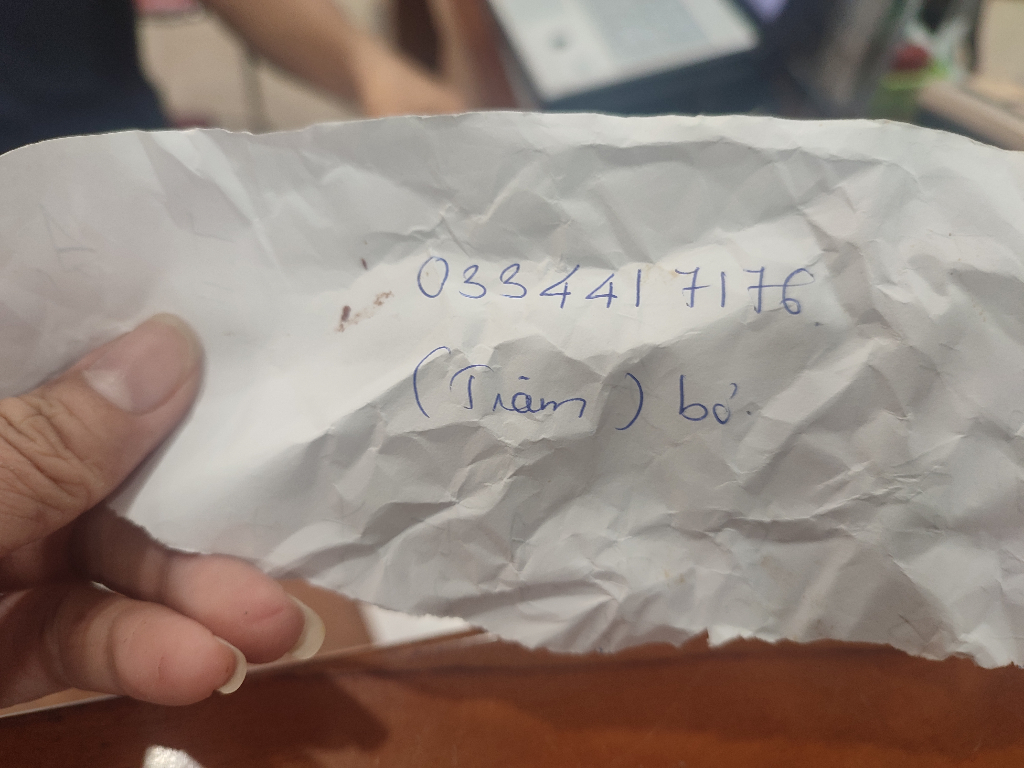 0334417176
(Trâm) bơ